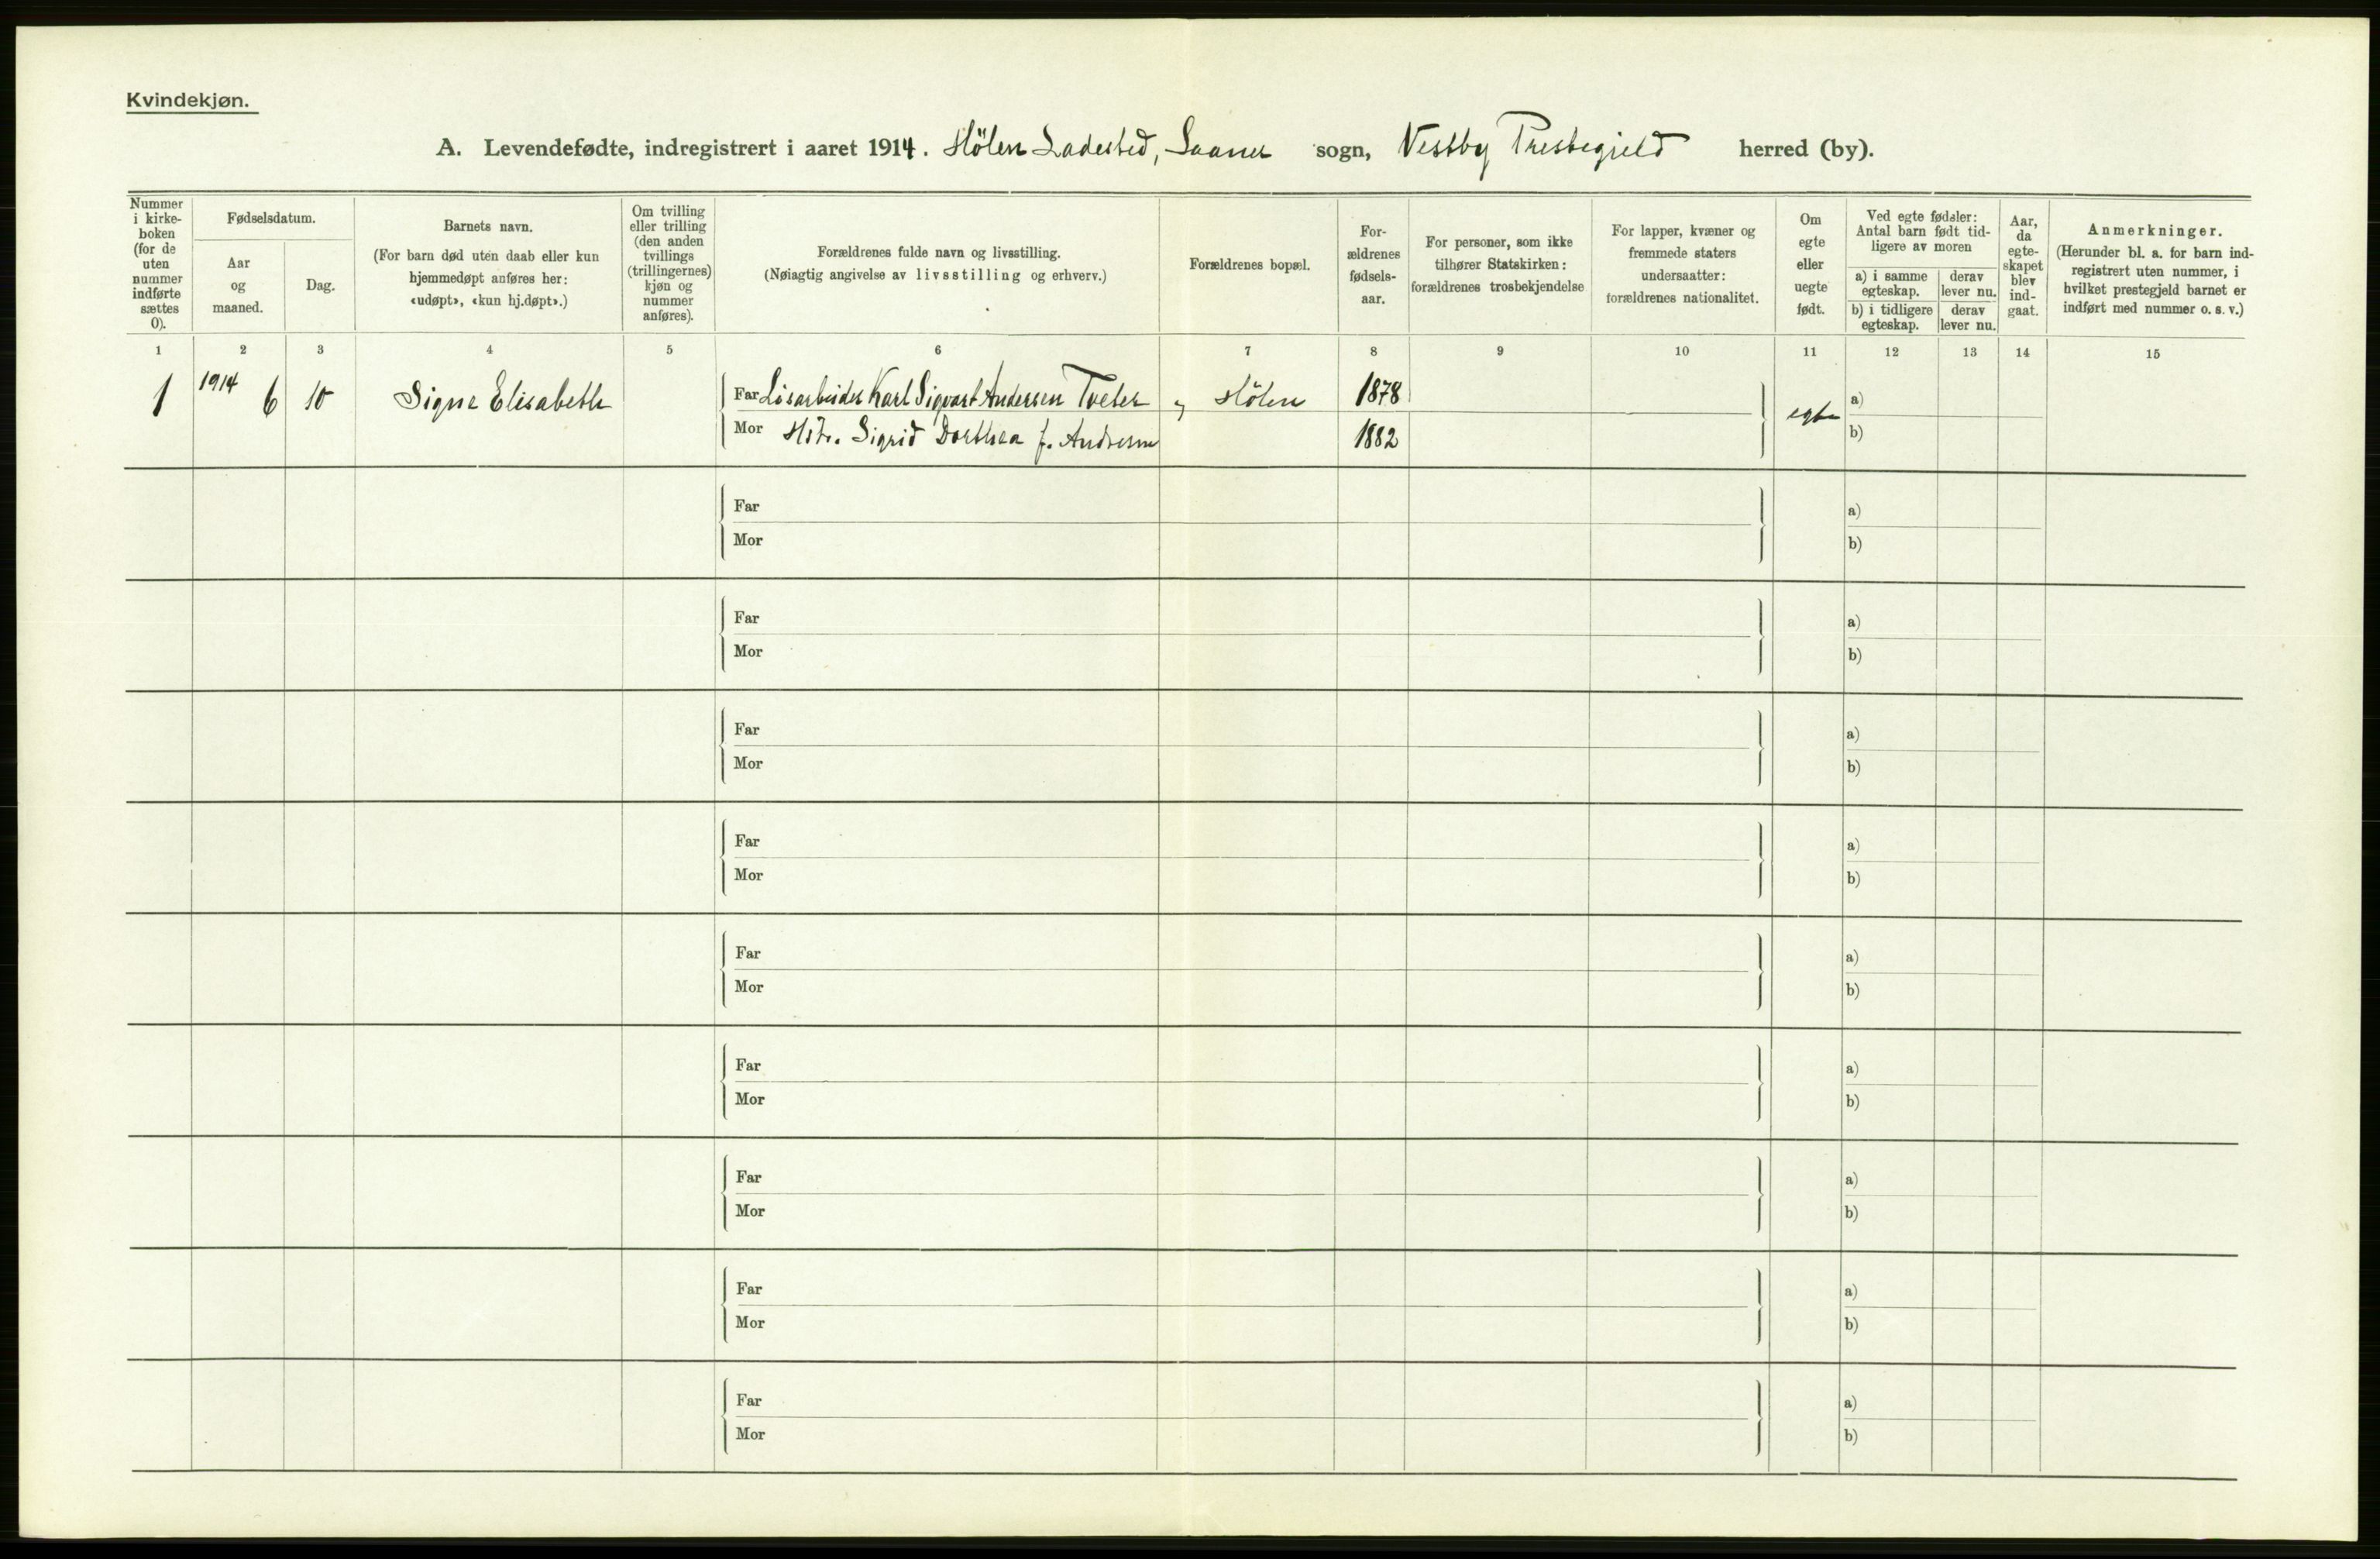 Kvindekjøn.
A. Levendefødte, indregistrert i aaret 1914. Hölen Ladested, Saaner sogn, Vestby Prestegield herred (by).
Nummer
i kirke-
boken
(for de
uten
nummer
indførte
sættes
0).
Fødselsdatum.
Aar
og
maaned.
Dag.
Barnets navn.
(For barn død uten daab eller kun
hjemmedøpt anføres her:
«udøpt», «kun hj.døpt».)
Om tvilling
eller trilling
(den anden
tvillings
(trillingernes)
kjøn og
nummer
anføres).
Forældrenes fulde navn og livsstilling.
(Nøiagtig angivelse av livsstilling og erhverv.)
Forældrenes bopæl.
For-
ældrenes
fødsels-
aar.
For personer, som ikke
tilhører Statskirken:
forældrenes trosbekjendelse
For lapper, kvæner og
fremmede staters
undersaatter:
forældrenes nationalitet.
Om
egte
eller
uegte
født.
Ved egte fødsler:
Antal barn født tid-
ligere av moren
a) i samme
egteskap.
derav
lever nu.
b) i tidligere
egteskap.
derav
lever nu.
Aar,
da
egte-
skapet
blev
ind-
gaat.
Anmerkninger.
(Herunder bl. a. for barn ind-
registrert uten nummer, i
hvilket prestegjeld barnet er
indført med nummer o. s. v.)
1 2 3 4 5 6 7 8 9 10 11 12 13 14 15
1 1914 6 10 Signe Elisabeth Far Løsarbeider Karl Sigvart Andersen Tveter Hölen 1878 egte a)
Mor Hstr. Sigrid Dorthea f. Andresen 1882 b)
Far a)
Mor b)
Far a)
Mor b)
Far a)
Mor b)
Far a)
Mor b)
Far a)
Mor b)
Far a)
Mor b)
Far a)
Mor b)
Far a)
Mor b)
Far a)
Mor b)